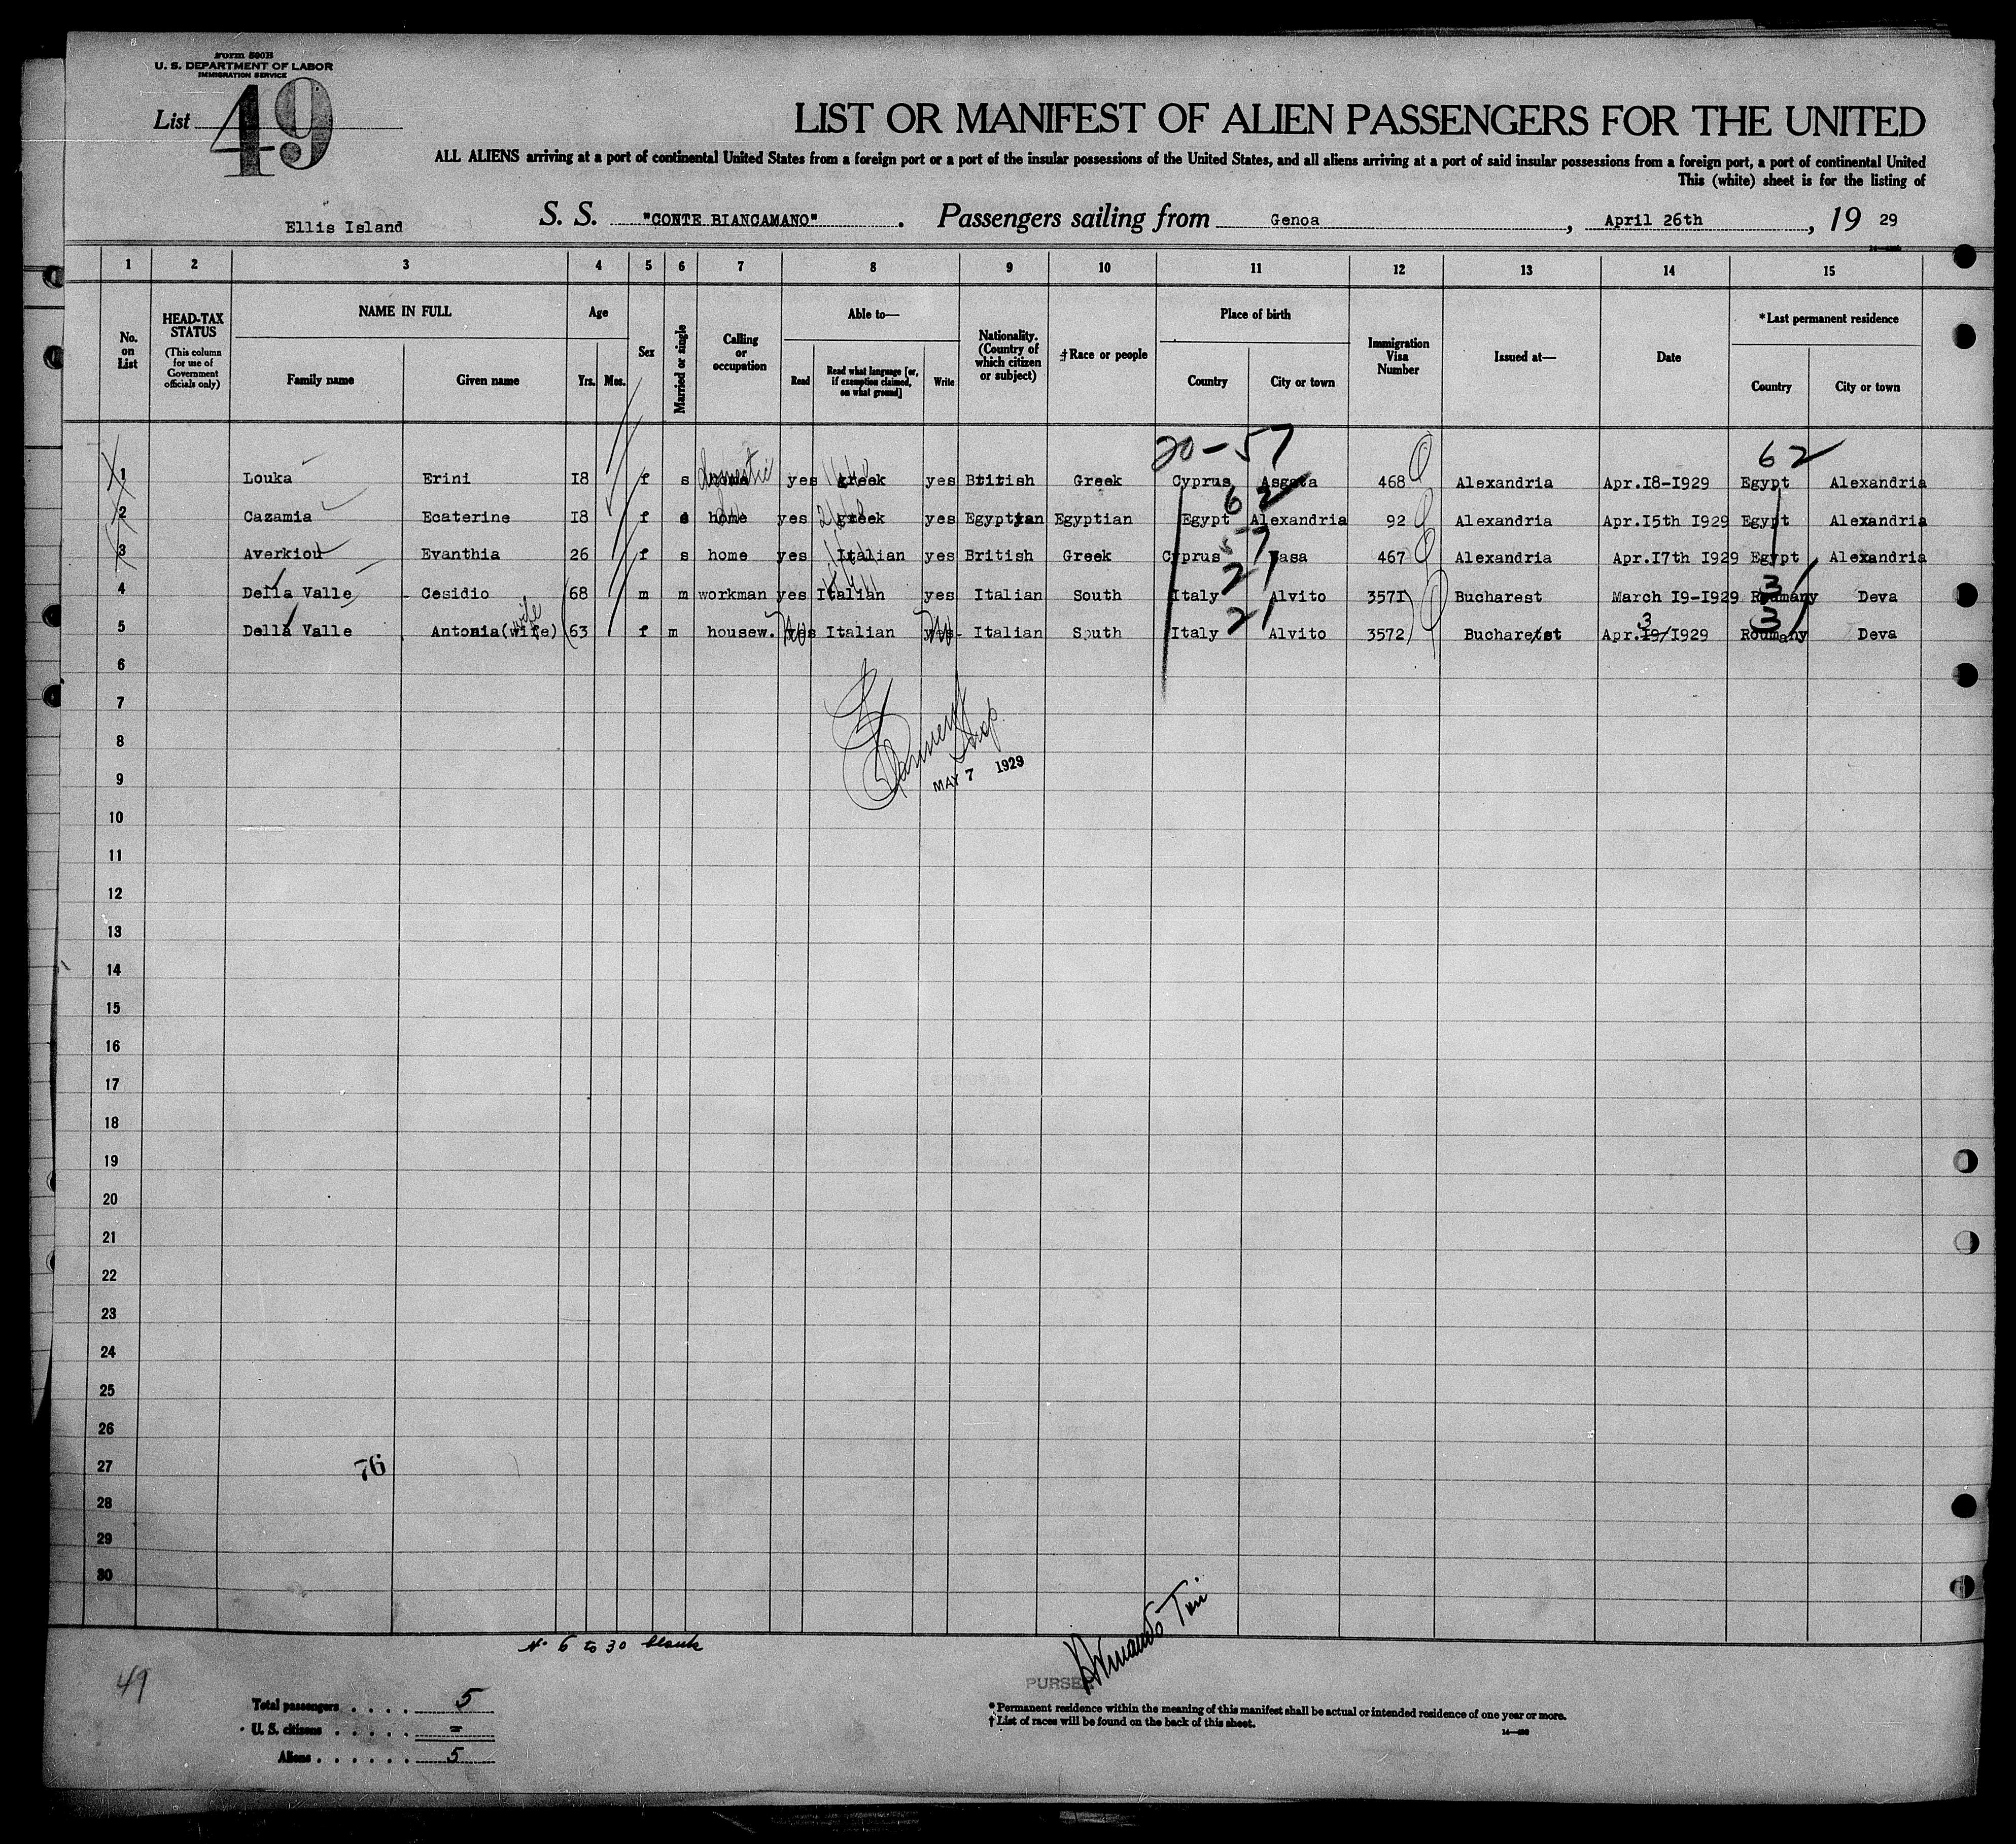 Form 500B
U. S. DEPARTMENT OF LABOR
IMMIGRATION SERVICE
List 49
LIST OR MANIFEST OF ALIEN PASSENGERS FOR THE UNITED
ALL ALIENS arriving at a port of continental United States from a foreign port or a port of the insular possessions of the United States, and all aliens arriving at a port of said insular possessions from a foreign port, a port of continental United
This (white) sheet is for the listing of
Ellis Island S. S. "CONTE BIANCAMANO". Passengers sailing from Genoa, April 26th, 19 29
1 2 3 4 5 6 7 8 9 10 11 12 13 14 15
No. on List
HEAD-TAX STATUS
(This column for use of Government officials only)
NAME IN FULL
Family name Given name
Age
Yrs. Mos.
Sex
Married or single
Calling or occupation
Able to—
Read Read what language [or, if exemption claimed, on what ground] Write
Nationality. (Country of which citizen or subject)
†Race or people
Place of birth
Country City or town
Immigration Visa Number
Issued at—
Date
*Last permanent residence
Country City or town
20-57 62
1 Louka Erini 18 f s home domestic yes greek yes British Greek Cyprus Asgata 468 Alexandria Apr.18-1929 Egypt Alexandria
62
2 Cazamia Ecaterine 18 f s home yes greek yes Egyptian Egyptian Egypt Alexandria 92 Alexandria Apr.15th 1929 Egypt Alexandria
57
3 Averkiou Evanthia 26 f s home yes Italian yes British Greek Cyprus Vasa 467 Alexandria Apr.17th 1929 Egypt Alexandria
21 31
4 Della Valle Cesidio 68 m m workman yes Italian yes Italian South Italy Alvito 3571 Bucharest March 19-1929 Roumany Deva
wife 21 3 31
5 Della Valle Antonia(wife) 63 f m housew. yes Italian yes Italian South Italy Alvito 3572 Bucharest Apr.19/1929 Roumany Deva
6
7
8
MAY 7 1929
9
10
11
12
13
14
15
16
17
18
19
20
21
22
23
24
25
26
27
76
28
29
30
No 6 to 30 blank
49
PURSER
Total passengers . . . . 5
U. S. citizens . . . . . =
Aliens . . . . . . 5
* Permanent residence within the meaning of this manifest shall be actual or intended residence of one year or more.
† List of races will be found on the back of this sheet.